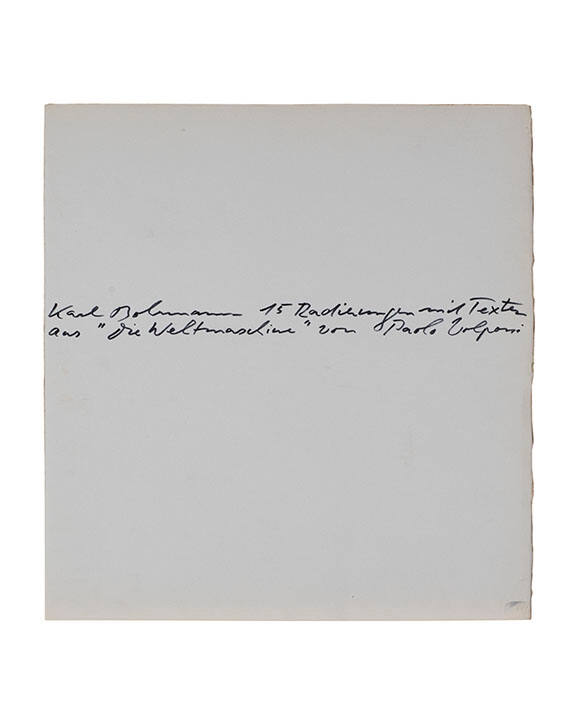 Karl Bohrmann 15 Radierungen mit Texten
aus "die Weltmaschine" von Paolo Volponi